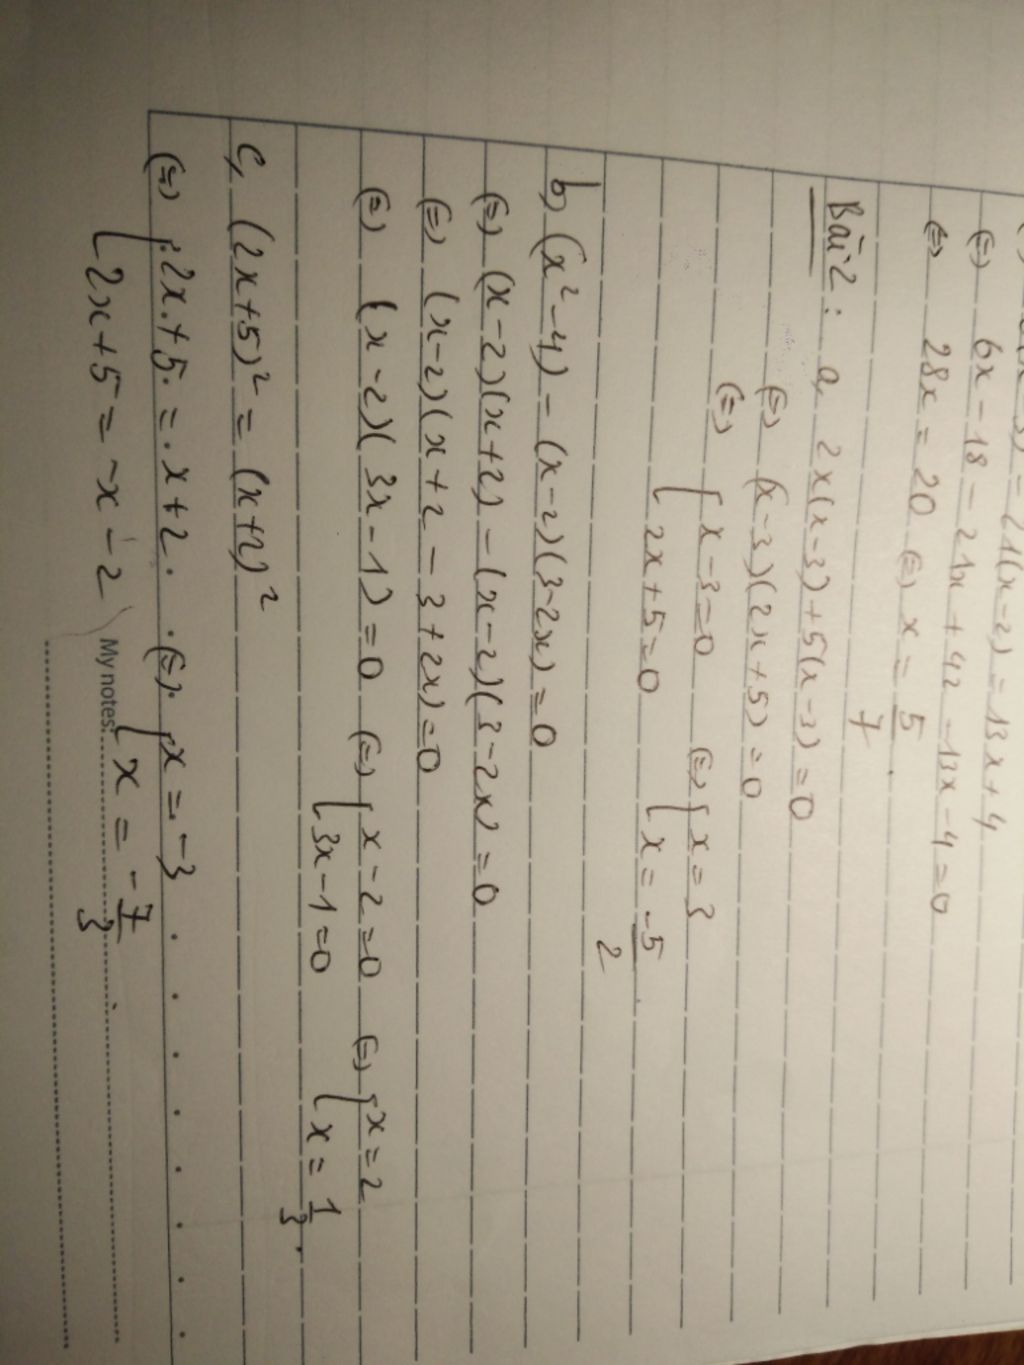 6x - 18 - 21x + 42 - 13x - 4 = 0
⇔ 28x = 20 ⇔ x = 5/7
Bài 2: a, 2x(x-3) + 5(x-3) = 0
⇔ (x-3)(2x+5) = 0
⇔ [x-3=0 ⇔ [x = 3
[2x+5=0 [x = -5/2
b, (x²-4) - (x-2)(3-2x) = 0
⇔ (x-2)(x+2) - (x-2)(3-2x) = 0
⇔ (x-2)(x+2-3+2x) = 0
⇔ (x-2)(3x-1) = 0 ⇔ [x-2=0 ⇔ [x = 2
[3x-1=0 [x = 1/3.
c, (2x+5)² = (x+2)²
⇔ [2x+5 = x+2 ⇔ [x = -3
[2x+5 = -x-2 [x = -7/3
My notes: